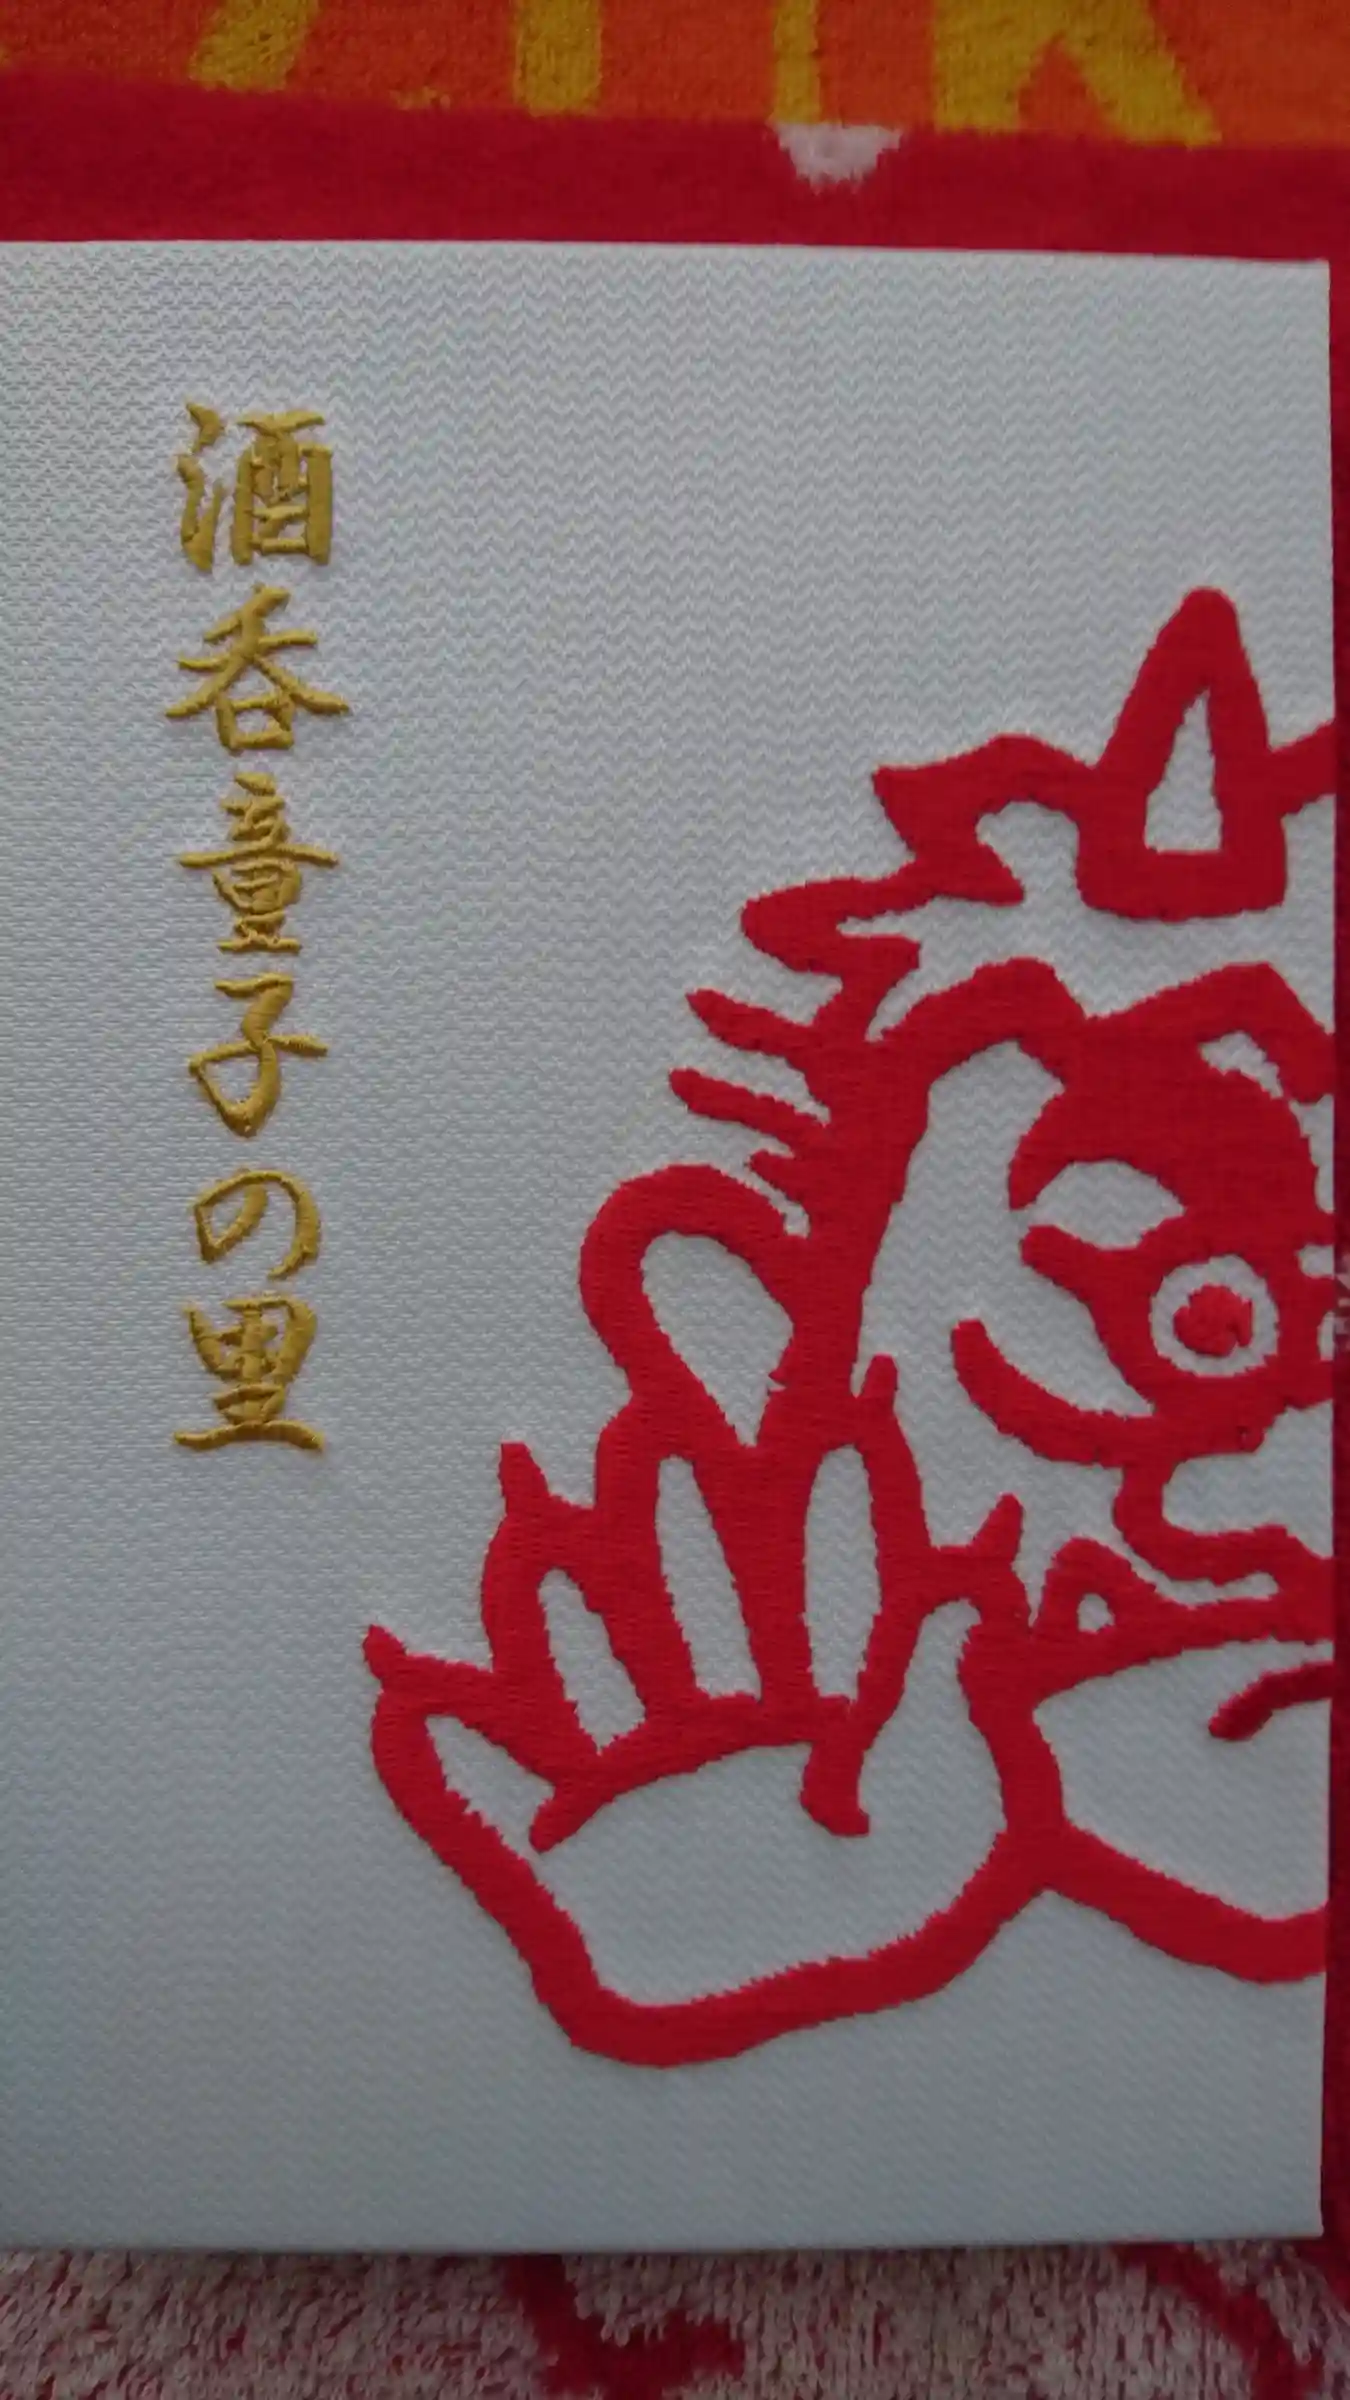 酒呑童子の里